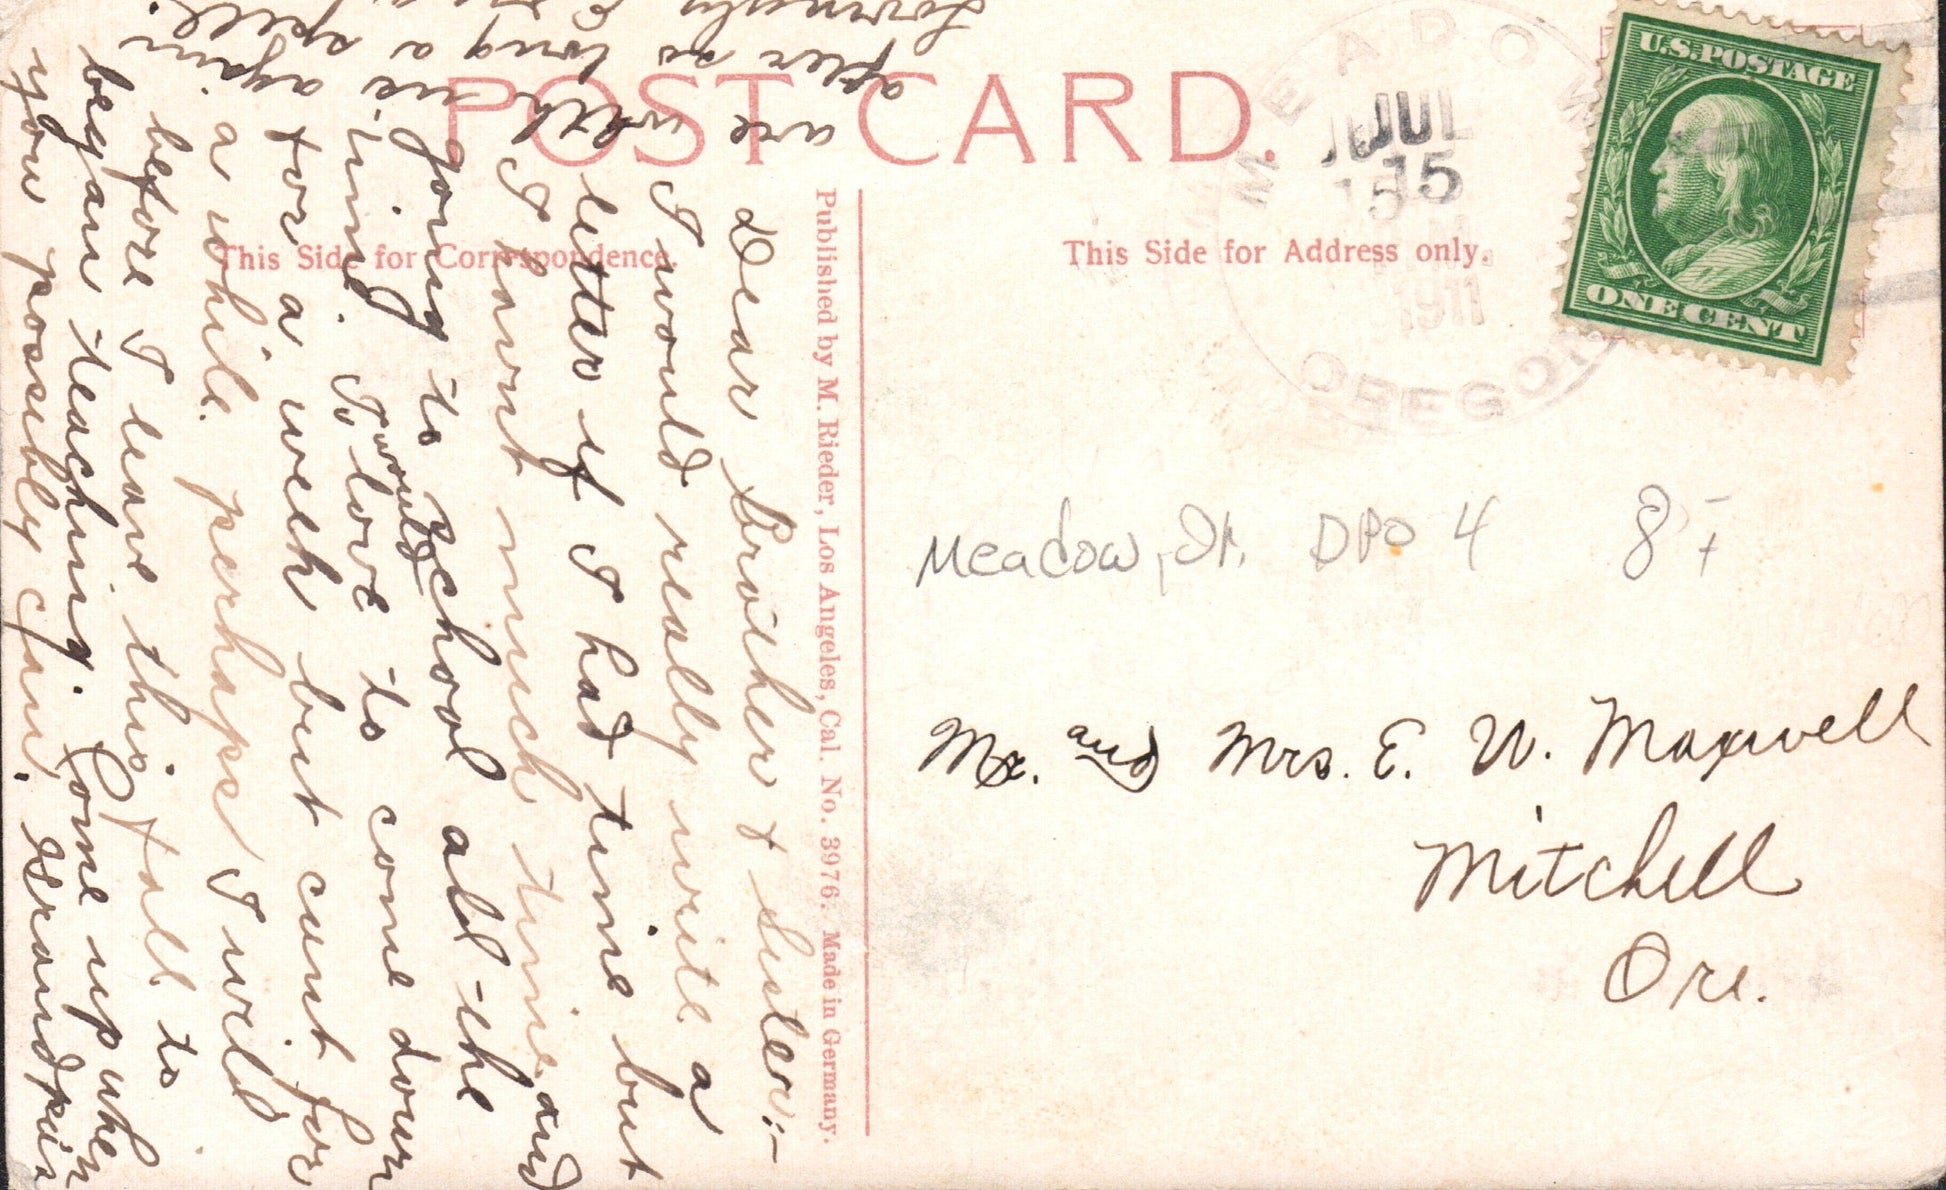 POST CARD.
This Side for Correspondence.
This Side for Address only.
Published by M. Rieder, Los Angeles, Cal. No. 3976. Made in Germany.
U.S. POSTAGE
ONE CENT
MEADOW
JUL
15
1911
OREGON
Meadow, Or. DPO 4 8-
Mr. and Mrs. E. W. Maxwell
Mitchell
Ore.
Dear Brother & Sister:-
I would really write a
letter if I had time but
I havent much time and
going to school all the
time. I would love to come down
for a week but cant for
a while perhaps I will
before I leave this fall to
begin teaching. Come up when
you possibly can. Grandpa
again
a spell.
are
with
after as long
Lovingly